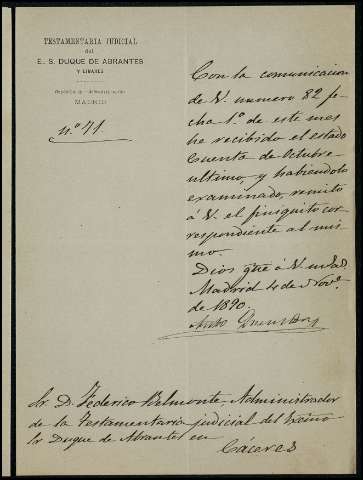 TESTAMENTARIA JUDICIAL
del
E. S. DUQUE DE ABRANTES
Y LINARES
MADRID
nº 71
Con la comunicacion
de V. numero 82 fe
cha 1º de este mes
he recibido el estado
Cuenta de Octubre
ultimo, y habiendolo
examinado, remito
á V. el finiquito cor
respondiente al mis
mo.
Dios gue á V. m. a.
Madrid 4 de Nove
de 1890.
Sr D. Federico Belmonte - Administrador
de la Testamentaria judicial del Excmo
Sr Duque de Abrantes en
Cáceres